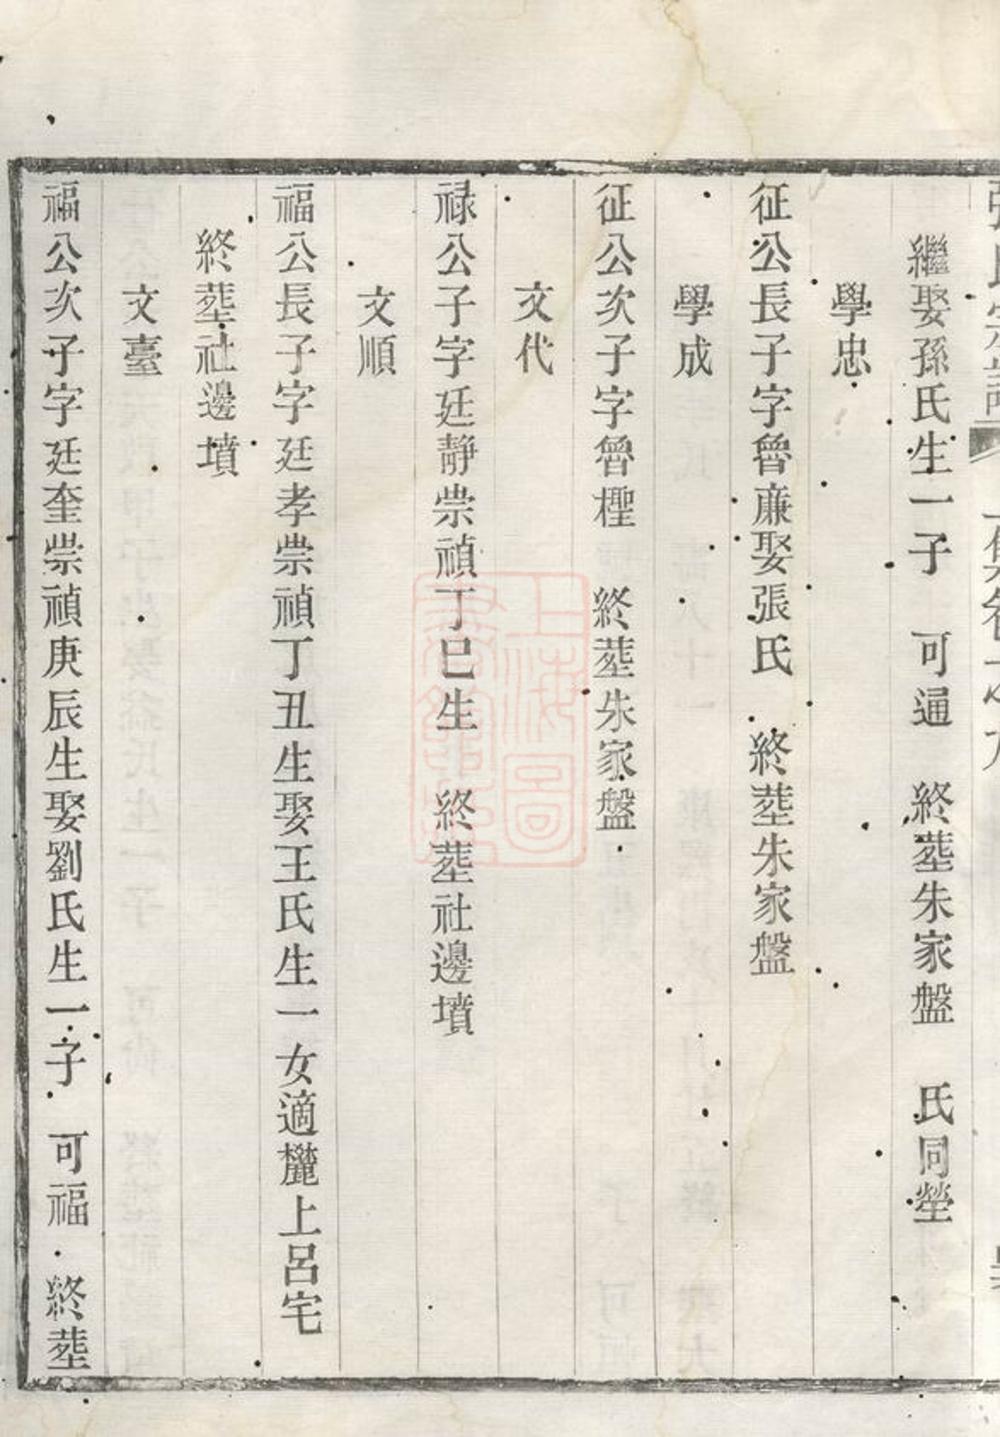 繼娶孫氏生一子　可通　終塟朱家盤　氏同塋
學忠
征公長子字魯亷娶張氏　終塟朱家盤
學成
征公次子字魯檉　終塟朱家盤
文代
禄公子字廷靜崇禎丁巳生　終塟社邊墳
文順
福公長子字廷孝崇禎丁丑生娶王氏生一女適麓上呂宅
終塟社邊墳
文臺
福公次子字廷奎崇禎庚辰生娶劉氏生一子　可福　終塟
上海圖